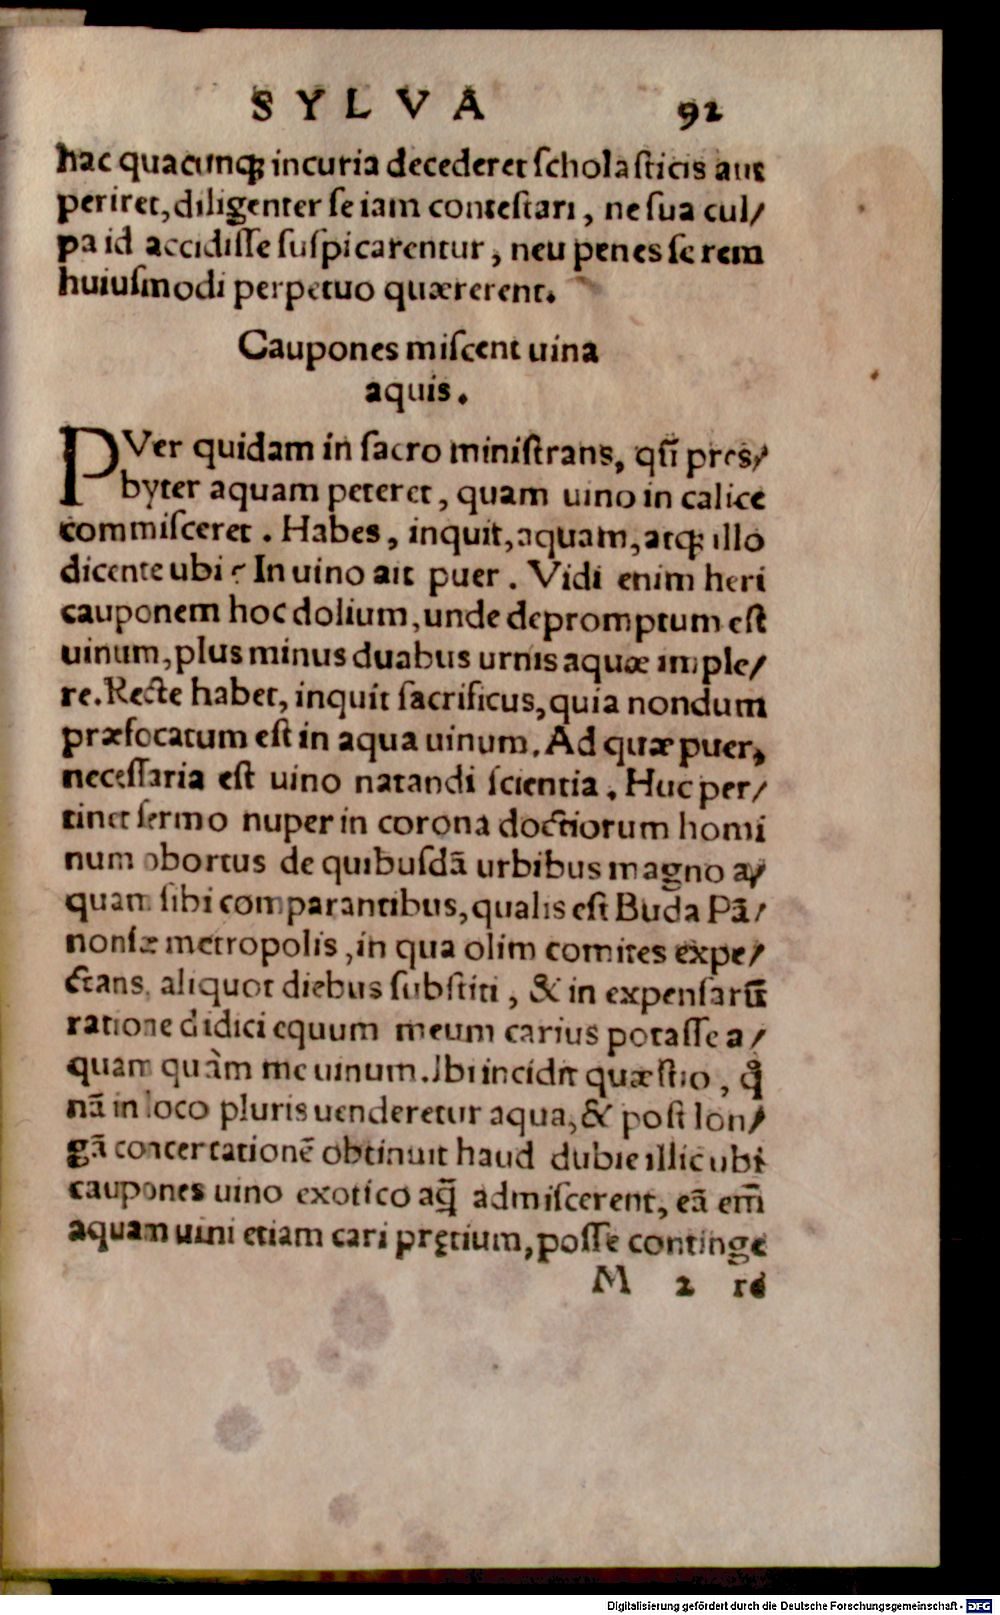 SYLVA 92
hac quacunqꝫ incuria decederet scholasticis aut
periret, diligenter se iam contestari, ne sua cul/
pa id accidisse suspicarentur, neu penes se rem
huiusmodi perpetuo quærerent.
Caupones miscent uina
aquis.
PVer quidam in sacro ministrans, qũ pres/
byter aquam peteret, quam uino in calice
commisceret. Habes, inquit, aquam, atqꝫ illo
dicente ubi? In uino ait puer. Vidi enim heri
cauponem hoc dolium, unde depromptum est
uinum, plus minus duabus urnis aquæ imple/
re. Recte habet, inquit sacrificus, quia nondum
præfocatum est in aqua uinum. Ad quæ puer,
necessaria est uino natandi scientia. Huc per/
tinet sermo nuper in corona doctiorum homi
num obortus de quibusdã urbibus magno a/
quam sibi comparantibus, qualis est Buda Pã/
noniæ metropolis, in qua olim comites expe/
ctans, aliquot diebus substiti, & in expensarũ
ratione didici equum meum carius potasse a/
quam quàm me uinum. Ibi incidit quæstio, q̊
nã in loco pluris uenderetur aqua, & post lon/
gã concertationẽ obtinuit haud dubie illic ubi
caupones uino exotico aq̃ admiscerent, eã em̃
aquam uini etiam cari pręcium, posse continge
M 2 re
Digitalisierung gefördert durch die Deutsche Forschungsgemeinschaft - DFG